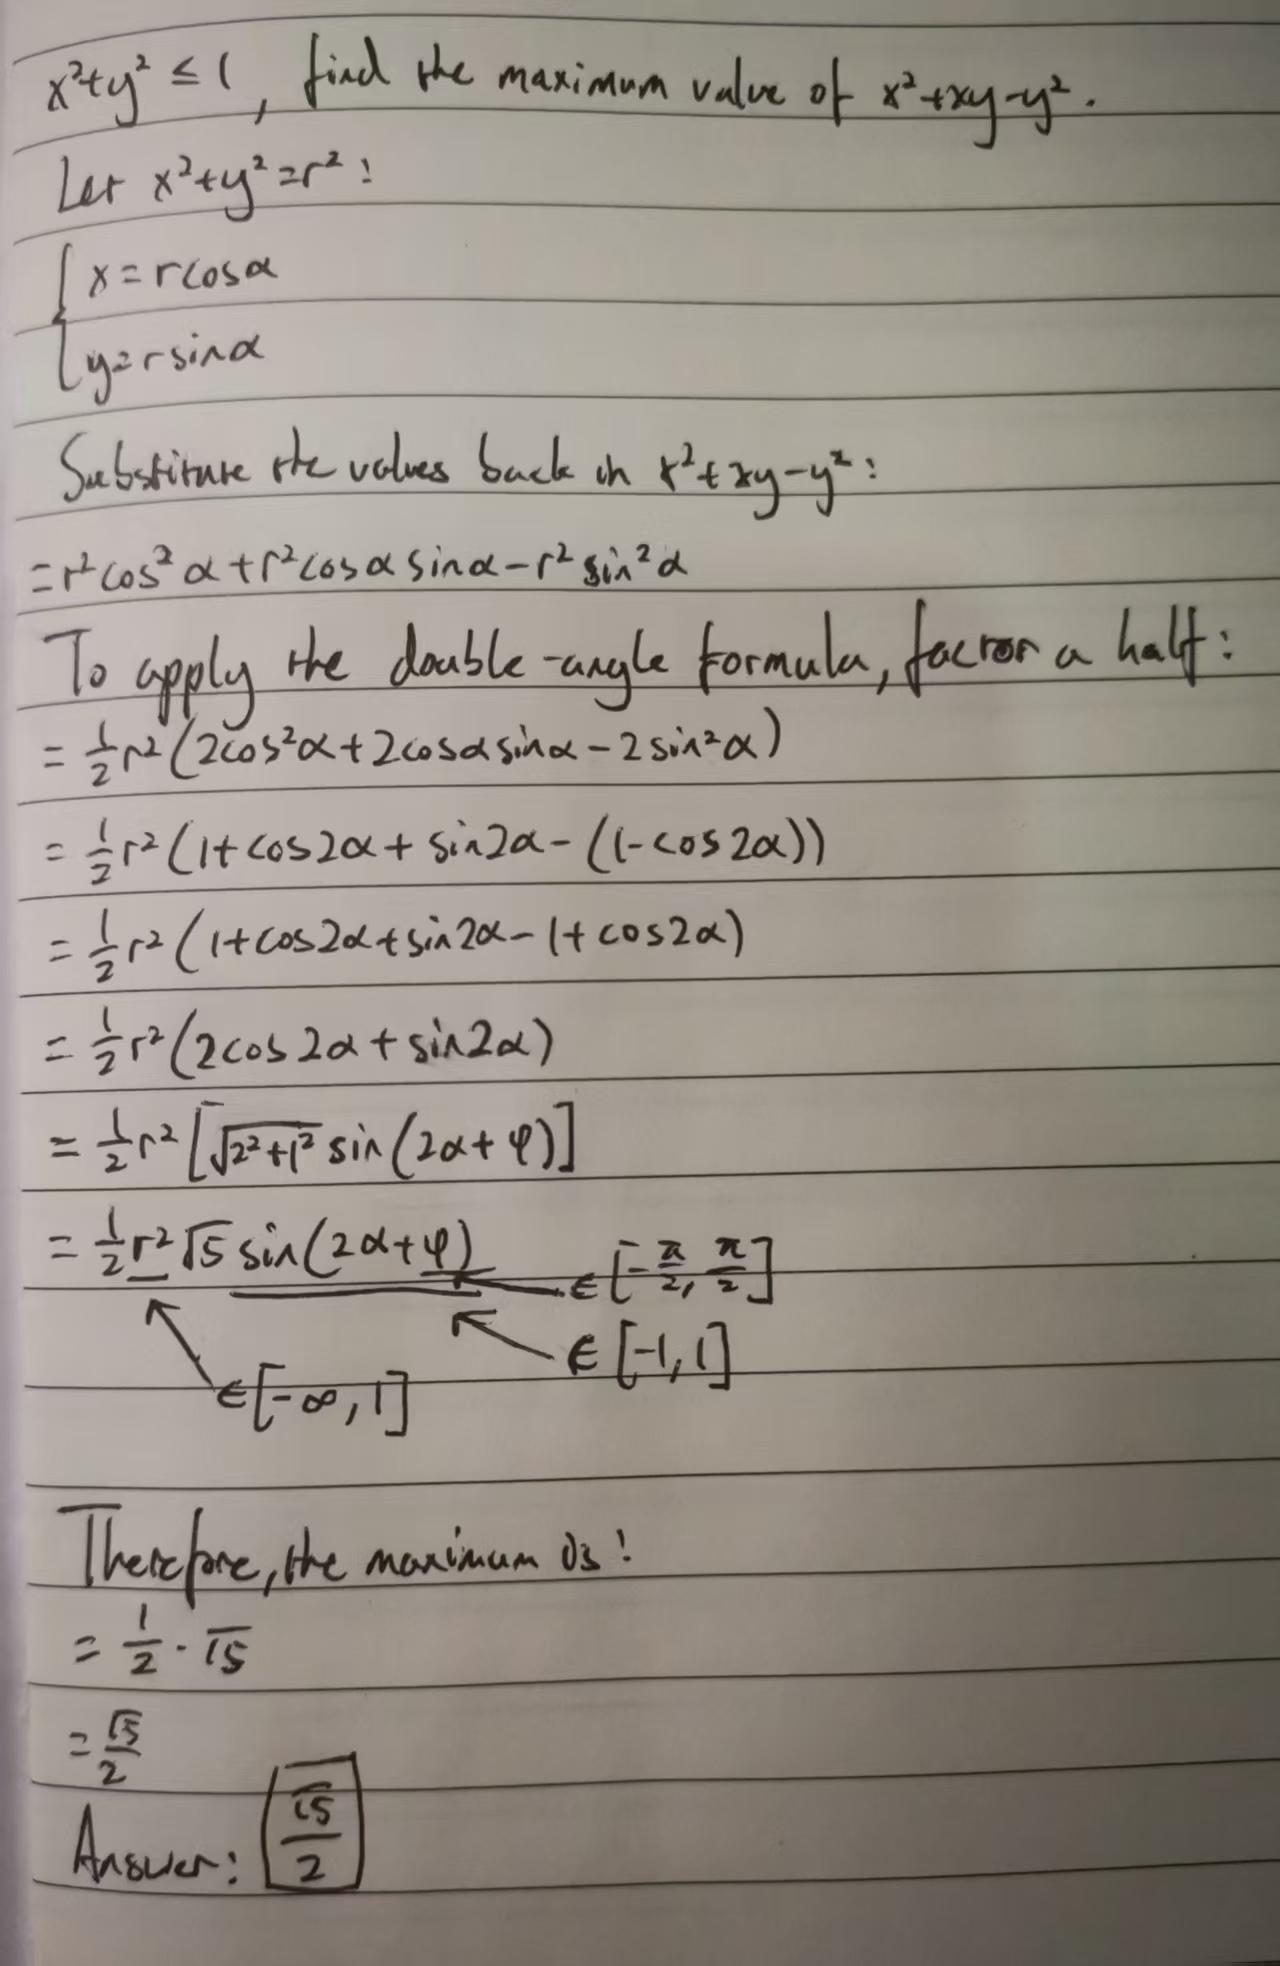 x²+y² ≤ 1, find the maximum value of x²+xy-y².
Let x²+y²=r²:
{ x = r cosα
{ y = r sinα
Substitute the values back in x²+xy-y²:
= r² cos² α + r² cos α sinα - r² sin² α
To apply the double-angle formula, factor a half:
= 1/2 r² (2cos²α + 2cosα sinα - 2 sin²α)
= 1/2 r² (1+cos2α + sin2α - (1-cos2α))
= 1/2 r² (1+cos2α+sin2α-1+cos2α)
= 1/2 r² (2cos2α + sin2α)
= 1/2 r² [√(2²+1²) sin(2α+φ)]
= 1/2 r² √5 sin(2α+φ) ∈ [-π/2, π/2]
∈ [-1, 1]
∈ [-∞, 1]
Therefore, the maximum is:
= 1/2 · √5
= √5/2
Answer: √5/2